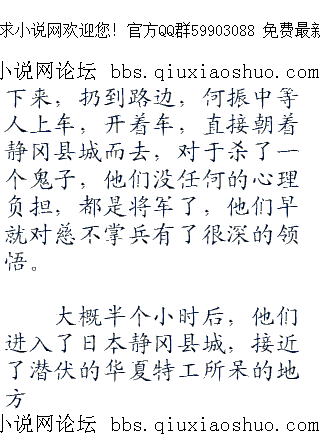 求小说网欢迎您！官方QQ群59903088 免费最新
小说网论坛 bbs.qiuxiaoshuo.com
下来，扔到路边，何振中等
人上车，开着车，直接朝着
静冈县城而去，对于杀了一
个鬼子，他们没任何的心理
负担，都是将军了，他们早
就对慈不掌兵有了很深的领
悟。
大概半个小时后，他们
进入了日本静冈县城，接近
了潜伏的华夏特工所呆的地
方
小说网论坛 bbs.qiuxiaoshuo.com